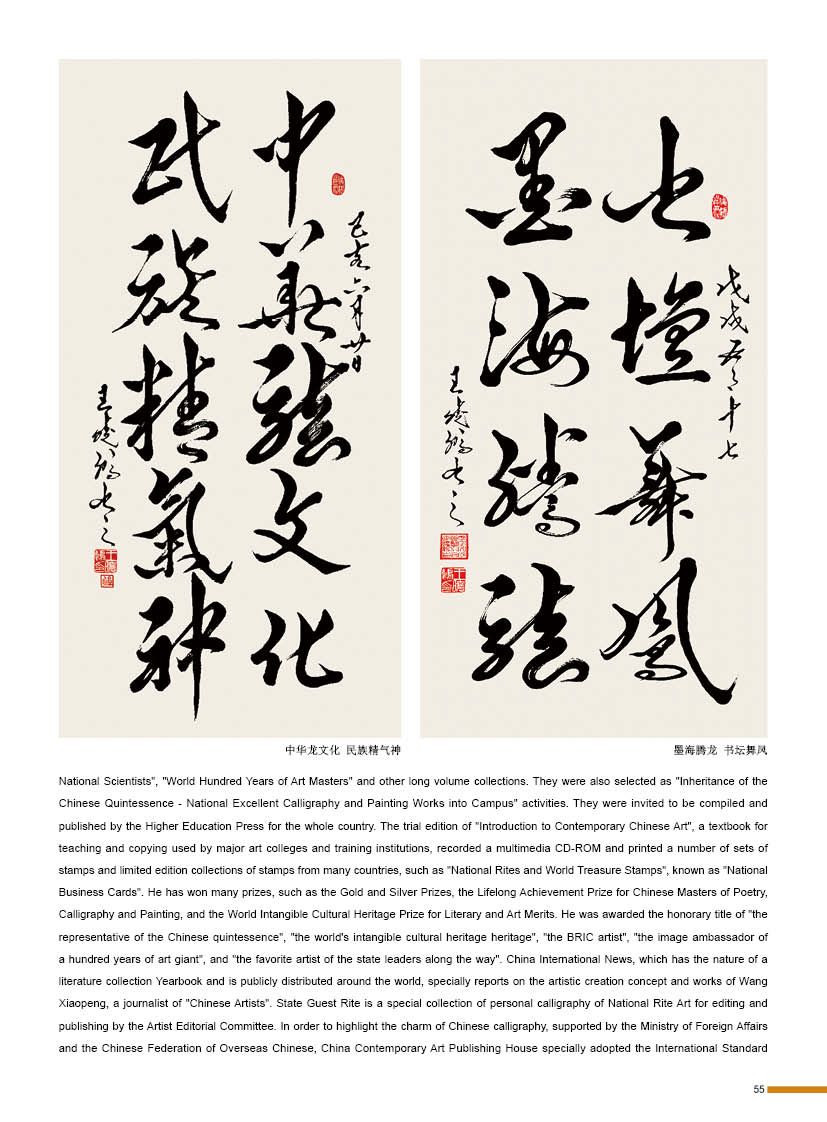 中華龍文化
民族精氣神
己亥六月廿日
王曉鵬書之
書壇舞鳳
墨海騰龍
戊戌五月十七
王曉鵬書之
中华龙文化 民族精气神
墨海腾龙 书坛舞凤
National Scientists", "World Hundred Years of Art Masters" and other long volume collections. They were also selected as "Inheritance of the
Chinese Quintessence - National Excellent Calligraphy and Painting Works into Campus" activities. They were invited to be compiled and
published by the Higher Education Press for the whole country. The trial edition of "Introduction to Contemporary Chinese Art", a textbook for
teaching and copying used by major art colleges and training institutions, recorded a multimedia CD-ROM and printed a number of sets of
stamps and limited edition collections of stamps from many countries, such as "National Rites and World Treasure Stamps", known as "National
Business Cards". He has won many prizes, such as the Gold and Silver Prizes, the Lifelong Achievement Prize for Chinese Masters of Poetry,
Calligraphy and Painting, and the World Intangible Cultural Heritage Prize for Literary and Art Merits. He was awarded the honorary title of "the
representative of the Chinese quintessence", "the world's intangible cultural heritage heritage", "the BRIC artist", "the image ambassador of
a hundred years of art giant", and "the favorite artist of the state leaders along the way". China International News, which has the nature of a
literature collection Yearbook and is publicly distributed around the world, specially reports on the artistic creation concept and works of Wang
Xiaopeng, a journalist of "Chinese Artists". State Guest Rite is a special collection of personal calligraphy of National Rite Art for editing and
publishing by the Artist Editorial Committee. In order to highlight the charm of Chinese calligraphy, supported by the Ministry of Foreign Affairs
and the Chinese Federation of Overseas Chinese, China Contemporary Art Publishing House specially adopted the International Standard
55